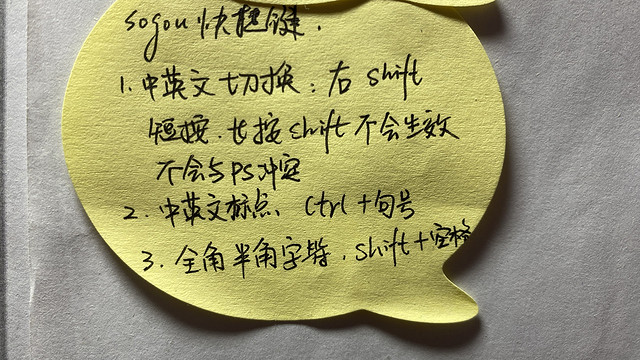 sogou快捷键.
1.中英文切换：右shift
短按.长按shift不会生效
不会与PS冲突
2.中英文标点、Ctrl+句号
3.全角半角字符.shift+空格